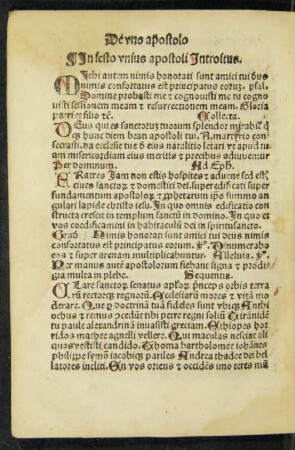 De vno apostolo
In festo vnius apostoli Introitus.
Michi autem nimis honorati sunt amici tui deus
nimis confortatus est principatus eoruz. psal.
Domine probasti me z cognouisti me tu cogno
uisti sessionem meam z resurrectionem meam. Gloria
patri et filio zc. Collecta.
Deus qui es sanctoruz tuorum splendor mirabilis
qui hunc diem beati apostoli tui N. martyrio con
secrasti. da ecclesie tue de eius natalitio letari vt apud tu
am misericordiam eius meritis z precibus adiuuemur
Per dominum. Ad Eph.
Fratres Jam non estis hospites z aduene sed estis
ciues sanctoruz z domestici dei. superedificati super
fundamentum apostoloruz z prophetarum ipso summo an
gulari lapide christo iesu. In quo omnis edificatio con
structa crescit in templum sanctum in domino. In quo et
vos coedificamini in habitaculum dei in spiritusancto.
Grad. Nimis honorati sunt amici tui deus nimis
confortatus est principatus eorum. Dinumerabo
eos z super arenam multiplicabuntur. Alleluia.
Per manus autem apostolorum fiebant signa z prodi
gia multa in plebe. Sequentia.
Clare sanctoruz senatus apostoloruz princeps orbis terra
rum rectorqz regnorum. Ecclesiarum mores z vitam mo
derare. Que per doctrinam tua fideles sunt vbiqz Anthi
ochus z remus concedunt tibi petre regni solium Tirannidem
tu paule alexandrinam inuasisti greciam. Ethiopes hor
ridos mathee agnelli vellere. Qui maculas nesciat ali
quas vestisti candido. Thoma bartholomee iohannes
philippe symon iacobiqz pariles Andrea thadee dei bel
latores incliti. En vos oriens z occidens imo teres mun